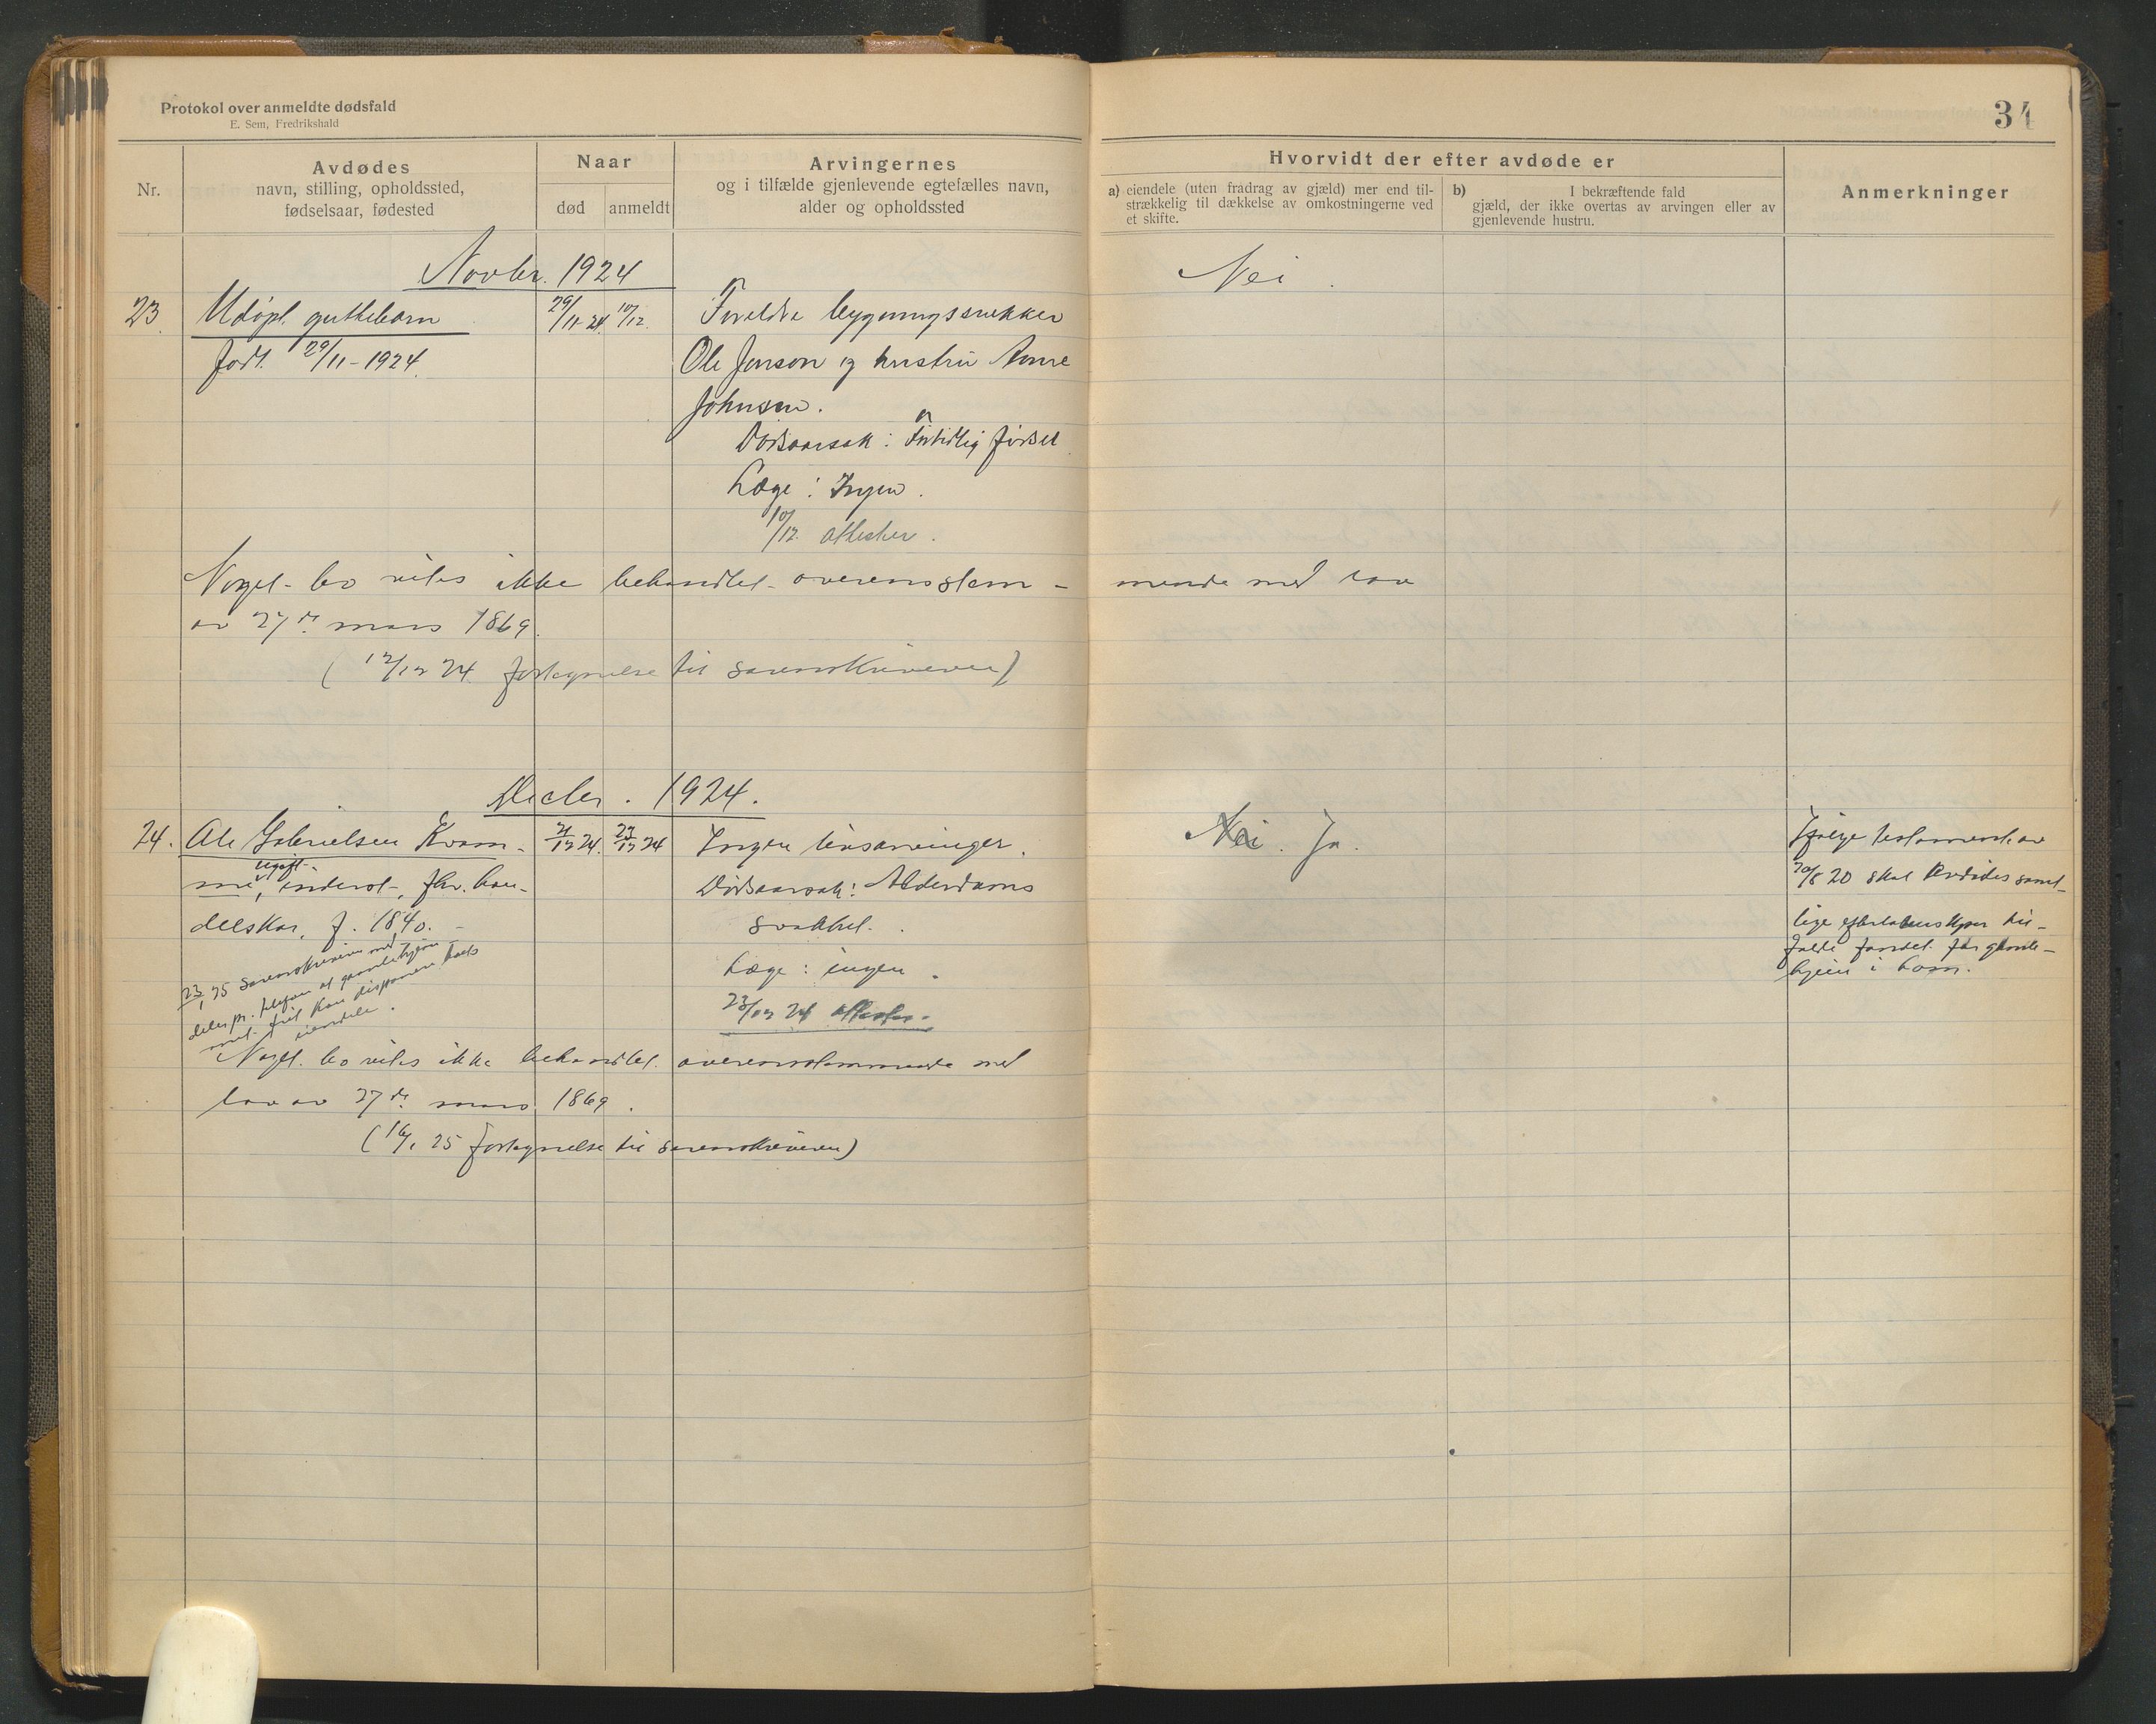 Protokol over anmeldte dødsfald
E. Sem, Fredrikshald
34
Nr.
Avdødes
navn, stilling, opholdssted,
fødselsaar, fødested
Naar
død
anmeldt
Arvingernes
og i tilfælde gjenlevende egtefælles navn,
alder og opholdssted
Hvorvidt der efter avdøde er
a) eiendele (uten fradrag av gjæld) mer end til-
strækkelig til dækkelse av omkostningerne ved
et skifte.
b) I bekræftende fald
gjæld, der ikke overtas av arvingen eller av
gjenlevende hustru.
Anmerkninger
Novbr. 1924
23. Udøpt guttebarn
født 29/11-1924.
29/11-24. 10/12.
Foreldre bygningssnekker
Ole Jonson og hustru Anne
Johnsen.
Dødsaarsak: Fortidlig fødsel
Læge: Ingen.
10/12 attester.
Nei.
Noget bo vites ikke behandlet overensstem- mende med lov
av 27de mars 1869.
(12/12 24. fortegnelse til sorenskriveren)
Decbr. 1924.
24. Ole Gabrielsen Kvam-
me, ugift, inderst, fhv. han-
delskar, f. 1840.
21/12 24. 23/12 24
Ingen livsarvinger.
Dødsaarsak: Alderdoms
svakhet.
Læge: ingen.
23/12 24 attester.
Nei. Ja.
Ifølge testament av
20/8 20 skal avdødes samt-
lige efterladenskaper til-
falde fondet for gamle-
hjem i
23/1 25 sorenskriveren med-
deler pr. telefon at gamlehjem-
met frit kan disponere hans
eiendele.
Noget bo vites ikke behandlet overensstemmende med
lov av 27de mars 1869.
(16/1 25 fortegnelse til sorenskriveren)